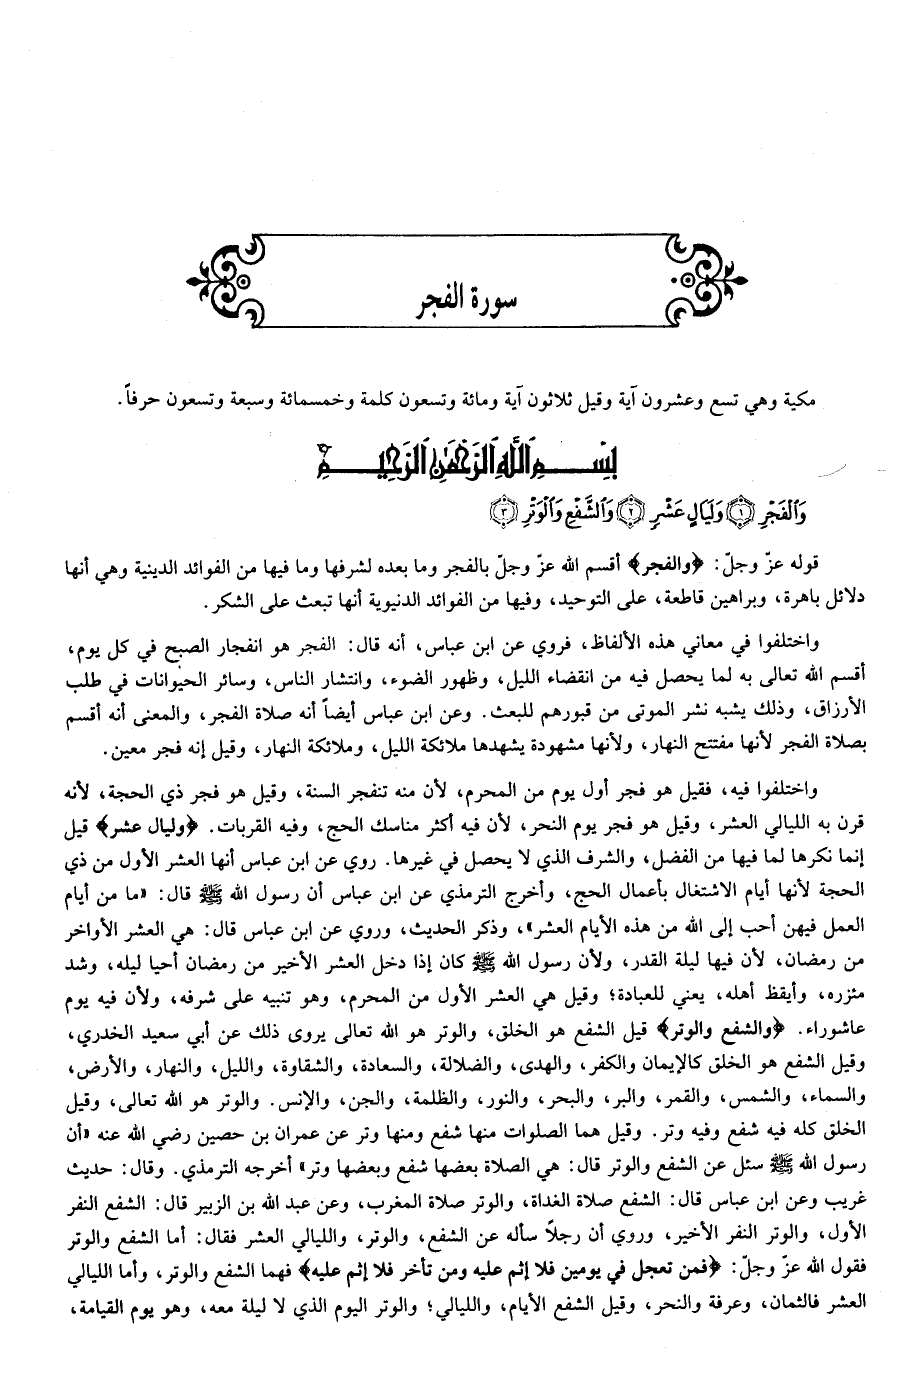 سورة الفجر
مكية وهي تسع وعشرون آية وقيل ثلاثون آية ومائة وتسعون كلمة وخمسمائة وسبعة وتسعون حرفاً.
بِسْمِ ٱللَّهِ ٱلرَّحْمَٰنِ ٱلرَّحِيمِ
وَٱلْفَجْرِ ﴿١﴾ وَلَيَالٍ عَشْرٍ ﴿٢﴾ وَٱلشَّفْعِ وَٱلْوَتْرِ ﴿٣﴾
قوله عزّ وجلّ: ﴿والفجر﴾ أقسم الله عزّ وجلّ بالفجر وما بعده لشرفها وما فيها من الفوائد الدينية وهي أنها
دلائل باهرة، وبراهين قاطعة، على التوحيد، وفيها من الفوائد الدنيوية أنها تبعث على الشكر.
واختلفوا في معاني هذه الألفاظ، فروي عن ابن عباس، أنه قال: الفجر هو انفجار الصبح في كل يوم،
أقسم الله تعالى به لما يحصل فيه من انقضاء الليل، وظهور الضوء، وانتشار الناس، وسائر الحيوانات في طلب
الأرزاق، وذلك يشبه نشر الموتى من قبورهم للبعث. وعن ابن عباس أيضاً أنه صلاة الفجر، والمعنى أنه أقسم
بصلاة الفجر لأنها مفتتح النهار، ولأنها مشهودة يشهدها ملائكة الليل، وملائكة النهار، وقيل إنه فجر معين.
واختلفوا فيه، فقيل هو فجر أول يوم من المحرم، لأن منه تنفجر السنة، وقيل هو فجر ذي الحجة، لأنه
قرن به الليالي العشر، وقيل هو فجر يوم النحر، لأن فيه أكثر مناسك الحج، وفيه القربات. ﴿وليال عشر﴾ قيل
إنما نكرها لما فيها من الفضل، والشرف الذي لا يحصل في غيرها. روي عن ابن عباس أنها العشر الأول من ذي
الحجة لأنها أيام الاشتغال بأعمال الحج، وأخرج الترمذي عن ابن عباس أن رسول الله ﷺ قال: «ما من أيام
العمل فيهن أحب إلى الله من هذه الأيام العشر»، وذكر الحديث، وروي عن ابن عباس قال: هي العشر الأواخر
من رمضان، لأن فيها ليلة القدر، ولأن رسول الله ﷺ كان إذا دخل العشر الأخير من رمضان أحيا ليله، وشد
مئزره، وأيقظ أهله، يعني للعبادة؛ وقيل هي العشر الأول من المحرم، وهو تنبيه على شرفه، ولأن فيه يوم
عاشوراء. ﴿والشفع والوتر﴾ قيل الشفع هو الخلق، والوتر هو الله تعالى يروى ذلك عن أبي سعيد الخدري،
وقيل الشفع هو الخلق كالإيمان والكفر، والهدى، والضلالة، والسعادة، والشقاوة، والليل، والنهار، والأرض،
والسماء، والشمس، والقمر، والبر، والبحر، والنور، والظلمة، والجن، والإنس. والوتر هو الله تعالى، وقيل
الخلق كله فيه شفع وفيه وتر. وقيل هما الصلوات منها شفع ومنها وتر عن عمران بن حصين رضي الله عنه «أن
رسول الله ﷺ سئل عن الشفع والوتر قال: هي الصلاة بعضها شفع وبعضها وتر» أخرجه الترمذي. وقال: حديث
غريب وعن ابن عباس قال: الشفع صلاة الغداة، والوتر صلاة المغرب، وعن عبد الله بن الزبير قال: الشفع النفر
الأول، والوتر النفر الأخير، وروي أن رجلاً سأله عن الشفع، والوتر، والليالي العشر فقال: أما الشفع والوتر
فقول الله عزّ وجلّ: ﴿فمن تعجل في يومين فلا إثم عليه ومن تأخر فلا إثم عليه﴾ فهما الشفع والوتر، وأما الليالي
العشر فالثمان، وعرفة والنحر، وقيل الشفع الأيام، والليالي؛ والوتر اليوم الذي لا ليلة معه، وهو يوم القيامة،